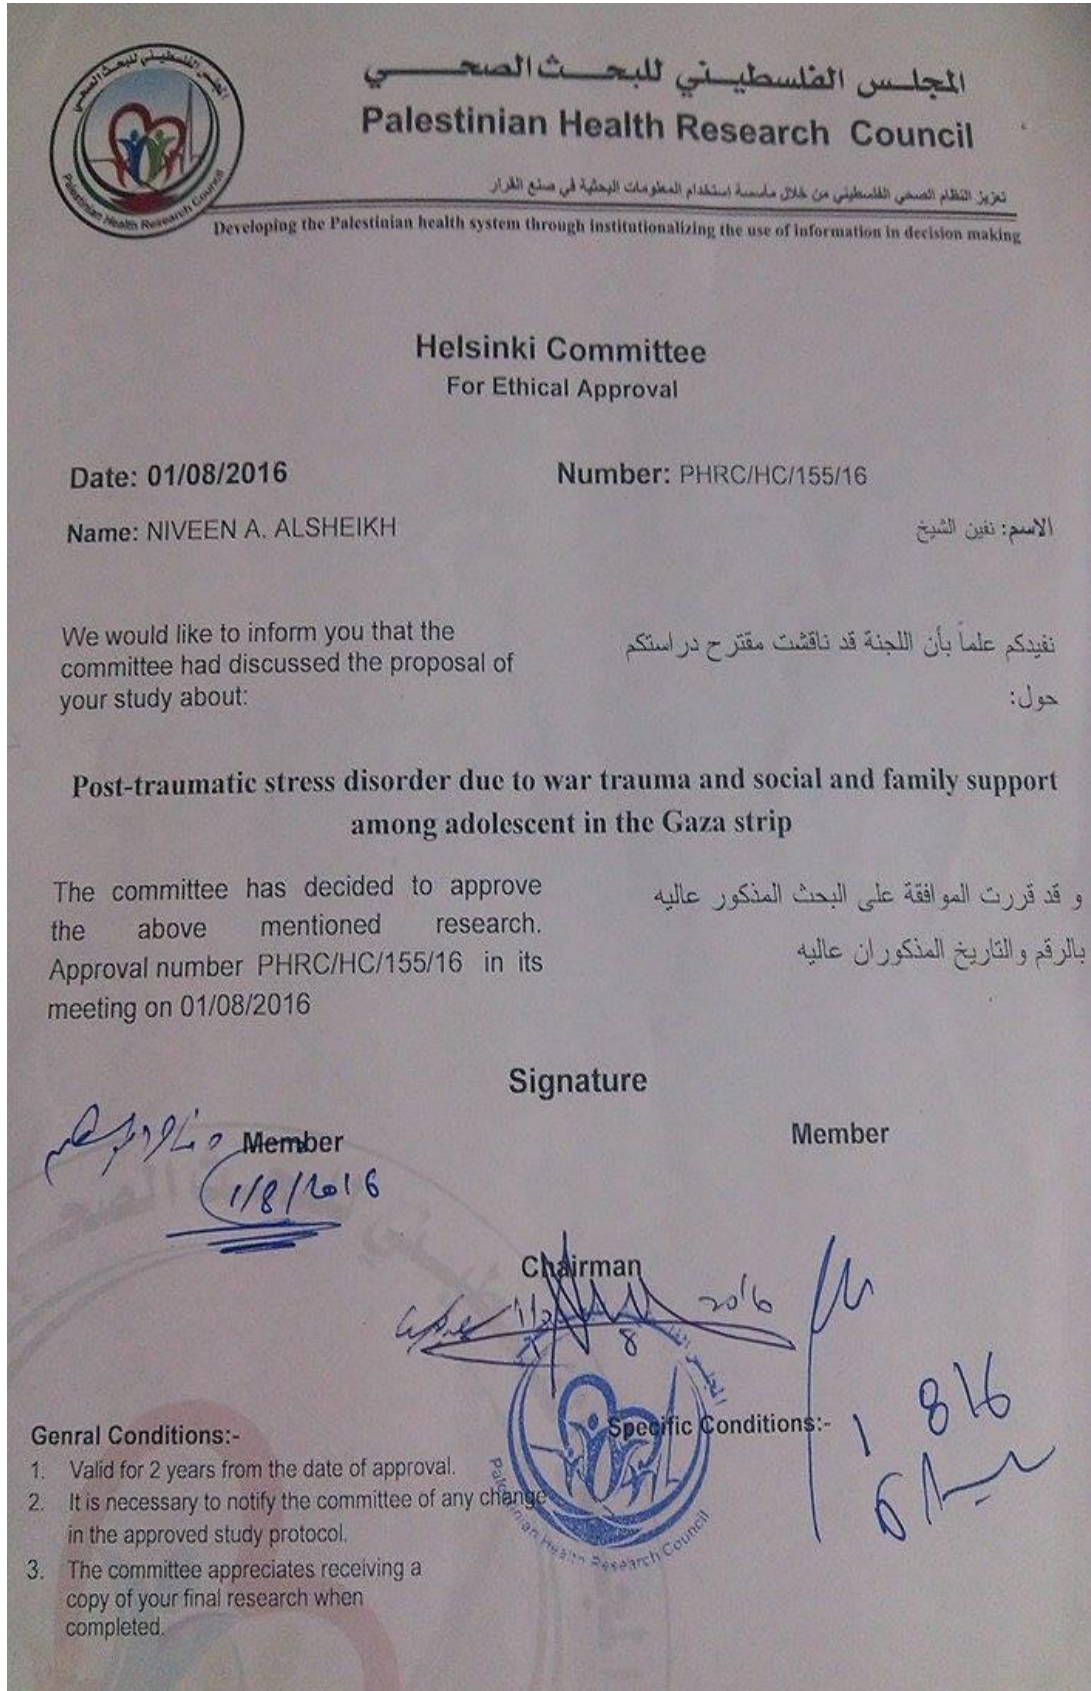 المجلس الفلسطيني للبحث الصحي
Palestinian Health Research Council
تعزيز النظام الصحي الفلسطيني من خلال مأسسة استخدام المعلومات البحثية في صنع القرار
Developing the Palestinian health system through institutionalizing the use of information in decision making
المجلس الفلسطيني للبحث الصحي
Palestinian Health Research Council
Helsinki Committee
For Ethical Approval
Date: 01/08/2016 Number: PHRC/HC/155/16
Name: NIVEEN A. ALSHEIKH الاسم: نفين الشيخ
We would like to inform you that the
committee had discussed the proposal of
your study about:
نفيدكم علماً بأن اللجنة قد ناقشت مقترح دراستكم
حول:
Post-traumatic stress disorder due to war trauma and social and family support
among adolescent in the Gaza strip
The committee has decided to approve
the above mentioned research.
Approval number PHRC/HC/155/16 in its
meeting on 01/08/2016
و قد قررت الموافقة على البحث المذكور عاليه
بالرقم والتاريخ المذكوران عاليه
Signature
Member Member
1/8/2016
Chairman
2016
8
Genral Conditions:-
1. Valid for 2 years from the date of approval.
2. It is necessary to notify the committee of any change
in the approved study protocol.
3. The committee appreciates receiving a
copy of your final research when
completed.
Specific Conditions:-
1 8 16
Palestinian Health Research Council